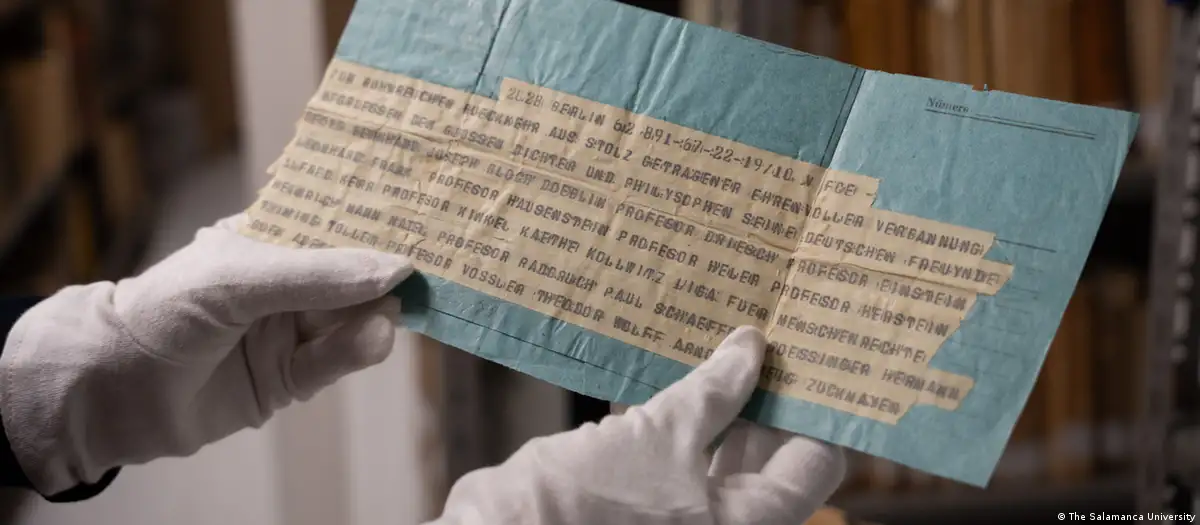 Número
BERLIN
AUS STOLZ GETRAGENER EHRENVOLLER VERBANNUNG
DEN GROSSEN DICHTER UND PHILYSOPHEN SEINE DEUTSCHEN FREUYNDE
BERNHARD JOSEPH BLOCH DOEBLIN PROFESOR DRIESCH PROFESOR EINSTEIN
LEONHARD FRANK PROFESOR HAUSENSTEIN PROFESOR HELER PROFESOR HERSTEIN
ALFRED KERR PROFESOR KINKEL KAETHE KOLLWITZ LIGA FUER MENSCHENRECHTE
HEINRICH MANN PROFESOR RADBRUCH PAUL HERMANN
TOLLER VOSSLER THEODOR WOLFF ZUCKMAYER
© The Salamanca University